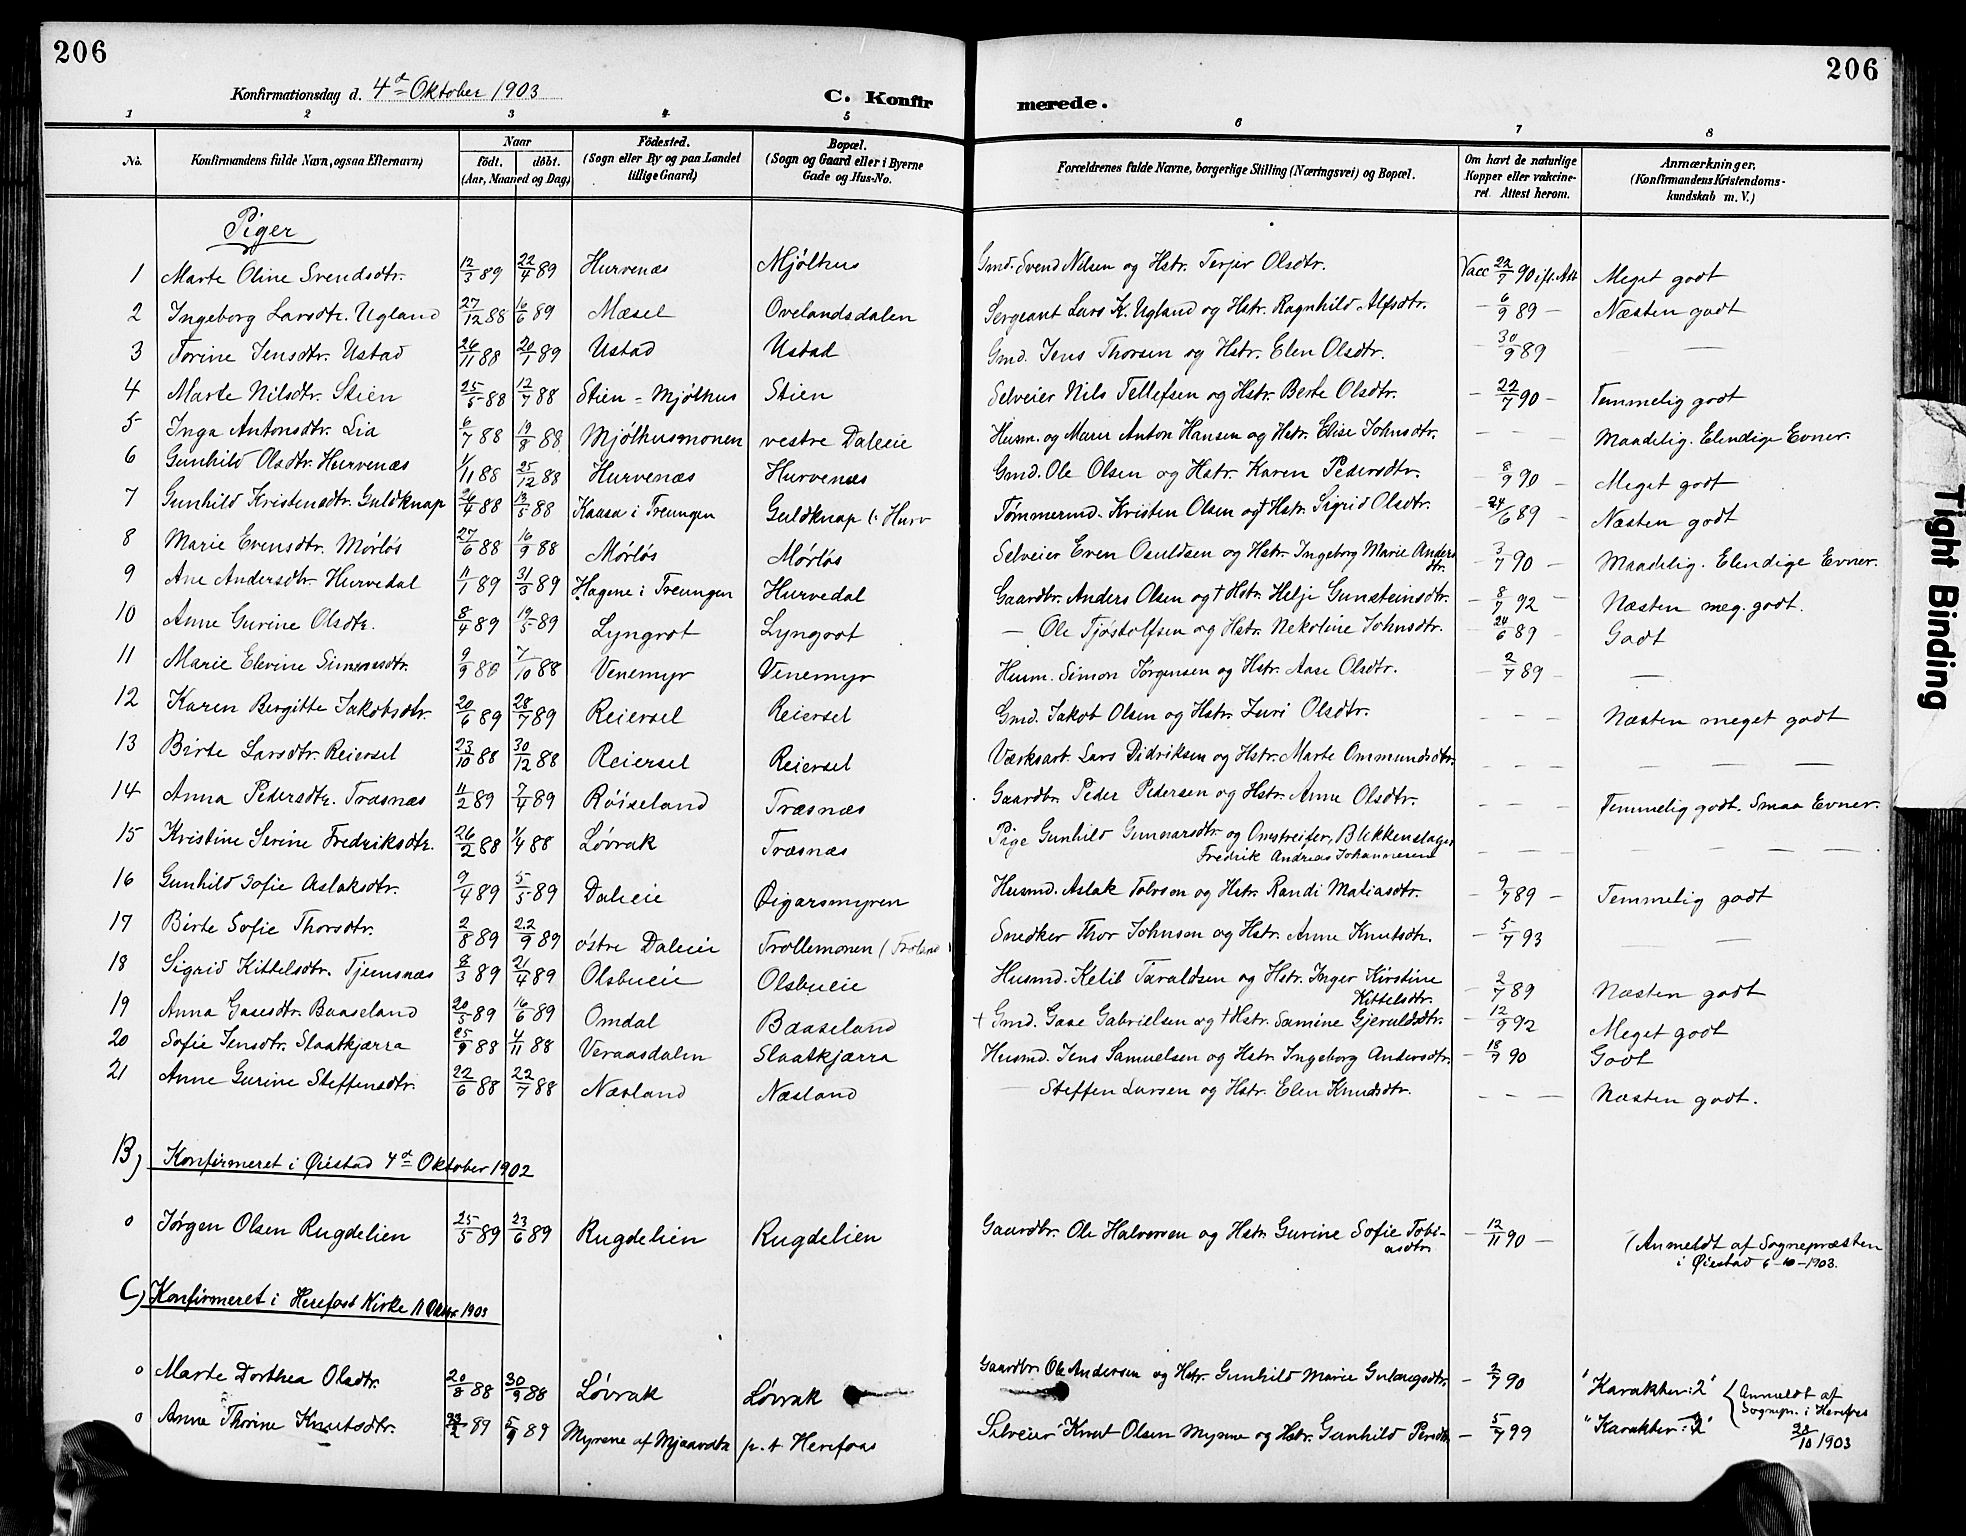 206
206
Konfirmationsdag d. 4d= Oktober 1903
C. Konfir merede.
1 2 3 4 5 6 7 8
No. Konfirmandens fulde Navn, ogsaa Efternavn) Naar født. døbt. (Aar, Maaned og Dag) Födested. (Sogn eller By og paa Landet tillige Gaard) Bopæl. (Sogn og Gaard eller i Byerne Gade og Hus-No. Forældrenes fulde Navne, borgerlige Stilling (Næringsvei) og Bopæl. Om havt de naturlige Kopper eller vakcineret. Attest herom. Anmærkninger. (Konfirmandens Kristendomskundskab m. V.)
Piger
1 Marte Oline Svendsdtr. 12/3 89 22/4 89 Hurvenæs Mjølhus Gmd. Svend Nilsen og Hstr. Terjer Olsdtr. Vacc 22/7 90 ifl. Att Meget godt
2 Ingeborg Larsdtr. Ugland 27/12 88 16/6 89 Mæsel Ovelandsdalen Sergeant Lars K. Ugland og Hstr. Ragnhild Alfsdtr. - 6/9 89 - Næsten godt
3 Torine Jensdtr. Ustad 26/11 88 20/1 89 Ustad Ustad Gmd. Jens Thorsen og Hstr. Elen Olsdtr. - 30/9 89 — —
4 Marte Nilsdtr. Stien 25/5 88 12/7 88 Stien - Mjølhus Stien Selveier Nils Tellefsen og Hstr. Berte Olsdtr. - 22/7 90 - Temmelig godt
5 Inga Antonsdtr. Lia 6/7 88 19/8 88 Mjølhusmonen vestre Daleie Husm. og Murer Anton Hansen og Hstr. Elise Johnsdtr. - - - Maadelig. Elendige Evner.
6 Gunhild Olsdtr. Hurvenæs 1/11 88 25/12 88 Hurvenæs Hurvenæs Gmd. Ole Olsen og Hstr. Karen Pedersdtr. - 8/9 90 - Meget godt
7 Gunhild Kristensdtr. Guldknap 26/4 88 13/5 88 Kaasa i Treungen Guldknap (: Hurv Tømmermd. Kristen Olsen og † Hstr. Sigrid Olsdtr. - 24/6 89 - Næsten godt
8 Marie Evensdtr. Mørløs 27/6 88 16/9 88 Mørløs Mørløs Selveier Even Osuldsen og Hstr. Ingeborg Marie Andersdtr. - 3/7 90 - Maadelig. Elendige Evner.
9 Ane Andersdtr. Hurvedal 11/1 89 31/3 89 Hagene i Treungen Hurvedal Gaardbr. Anders Olsen og † Hstr. Helje Gunsteinsdtr. - 8/7 92 Næsten meg. godt.
10 Anne Gurine Olsdtr. 8/4 89 19/5 89 Lyngrot Lyngrot — Ole Tjøstolfsen og Hstr. Nekoline Johnsdtr. - 24/6 89 - Godt
11 Marie Elevine Simonsdtr. 9/9 80 7/10 88 Venemyr Venemyr Husm. Simon Jørgensen og Hstr. Aase Olsdtr. - 2/7 89 - —
12 Karen Bergitte Jakobsdtr. 20/6 89 28/7 89 Reiersel Reiersel Gmd. Jakob Olsen og Hstr. Juri Olsdtr. - - - Næsten meget godt
13 Birte Larsdtr. Reiersel 23/10 88 30/12 88 Reiersel Reiersel Værksarb. Lars Didriksen og Hstr. Marte Ommundsdtr. - - - — — —
14 Anna Pedersdtr. Træsnæs 11/2 89 7/4 89 Røiseland Træsnæs Gaardbr. Peder Pedersen og Hstr. Anne Olsdtr. - - - Temmelig godt. Smaa Evner.
15 Kristine Serine Fredriksdtr. 26/2 88 1/4 88 Løvrak Træsnæs Pige Gunhild Gunnarsdtr. og Omstreifer, Blikkenslager Fredrik Andreas Johannesen - - - — — — —
16 Gunhild Sofie Aslaksdtr. 9/4 89 5/5 89 Daleie Øigarsmyren Husmd. Aslak Tolvsen og Hstr. Randi Matiasdtr. - 9/7 89 - Temmelig godt
17 Birte Sofie Thorsdtr. 2/8 89 22/9 89 østre Daleie Trollemonen Snedker Thor Johnsen og Hstr. Anne Knutsdtr. - 5/7 93 — —
18 Sigrid Kittelsdtr. Tjumsnæs 8/3 89 21/4 89 Olsbueie Olsbueie Husmd. Ketil Taraldsen og Hstr. Inger Kirstine Kittelsdtr. - 2/7 89 - Næsten godt
19 Anna Gasesdtr. Baaseland 20/5 89 16/6 89 Omdal Baaseland † Gmd. Gase Gabrielsen og † Hstr. Samine Gjeruldsdtr. - 12/9 92 Meget godt
20 Sofie Jensdtr. Slaatkjærra 25/9 88 4/11 88 Veraasdalen Slaatkjærra Husmd. Jens Samuelsen og Hstr. Ingeborg Andersdtr. - 18/7 90 Godt
21 Anne Gurine Steffensdtr. 22/6 88 22/7 88 Næsland Næsland — Steffen Larsen og Hstr. Elen Knudsdtr. - - - Næsten godt.
B) Konfirmeret i Øiestad 4d= Oktober 1902
o Jørgen Olsen Rugdelien 25/5 89 23/6 89 Rugdelien Rugdelien Gaardbr. Ole Halvorsen og Hstr. Gurine Sofie Tobiasdtr - 12/11 90 - (Anmeldt af Sognepræsten i Øiestad 6-10-1903.
C) Konfirmeret i Herefost Kirke 11 Oktbr. 1903
o Marte Dorthea Olsdtr. 20/8 88 30/9 88 Løvrak Løvrak Gaardbr. Ole Andersen og Hstr. Gunhild Marie Gulaugsdtr. - 2/7 90 "Karakter: 2" { Anmeldt af Sognepr. i Herefos
o Anne Thorine Knutsdtr. 23/2 89 5/9 89 Myrene af Mjaavatn p.t. Herefoss Selveier Knut Olsen Myrene og Hstr. Gunhild Persdtr - 5/7 99 "Karakter: 2" 20/10 1903
Tight Binding